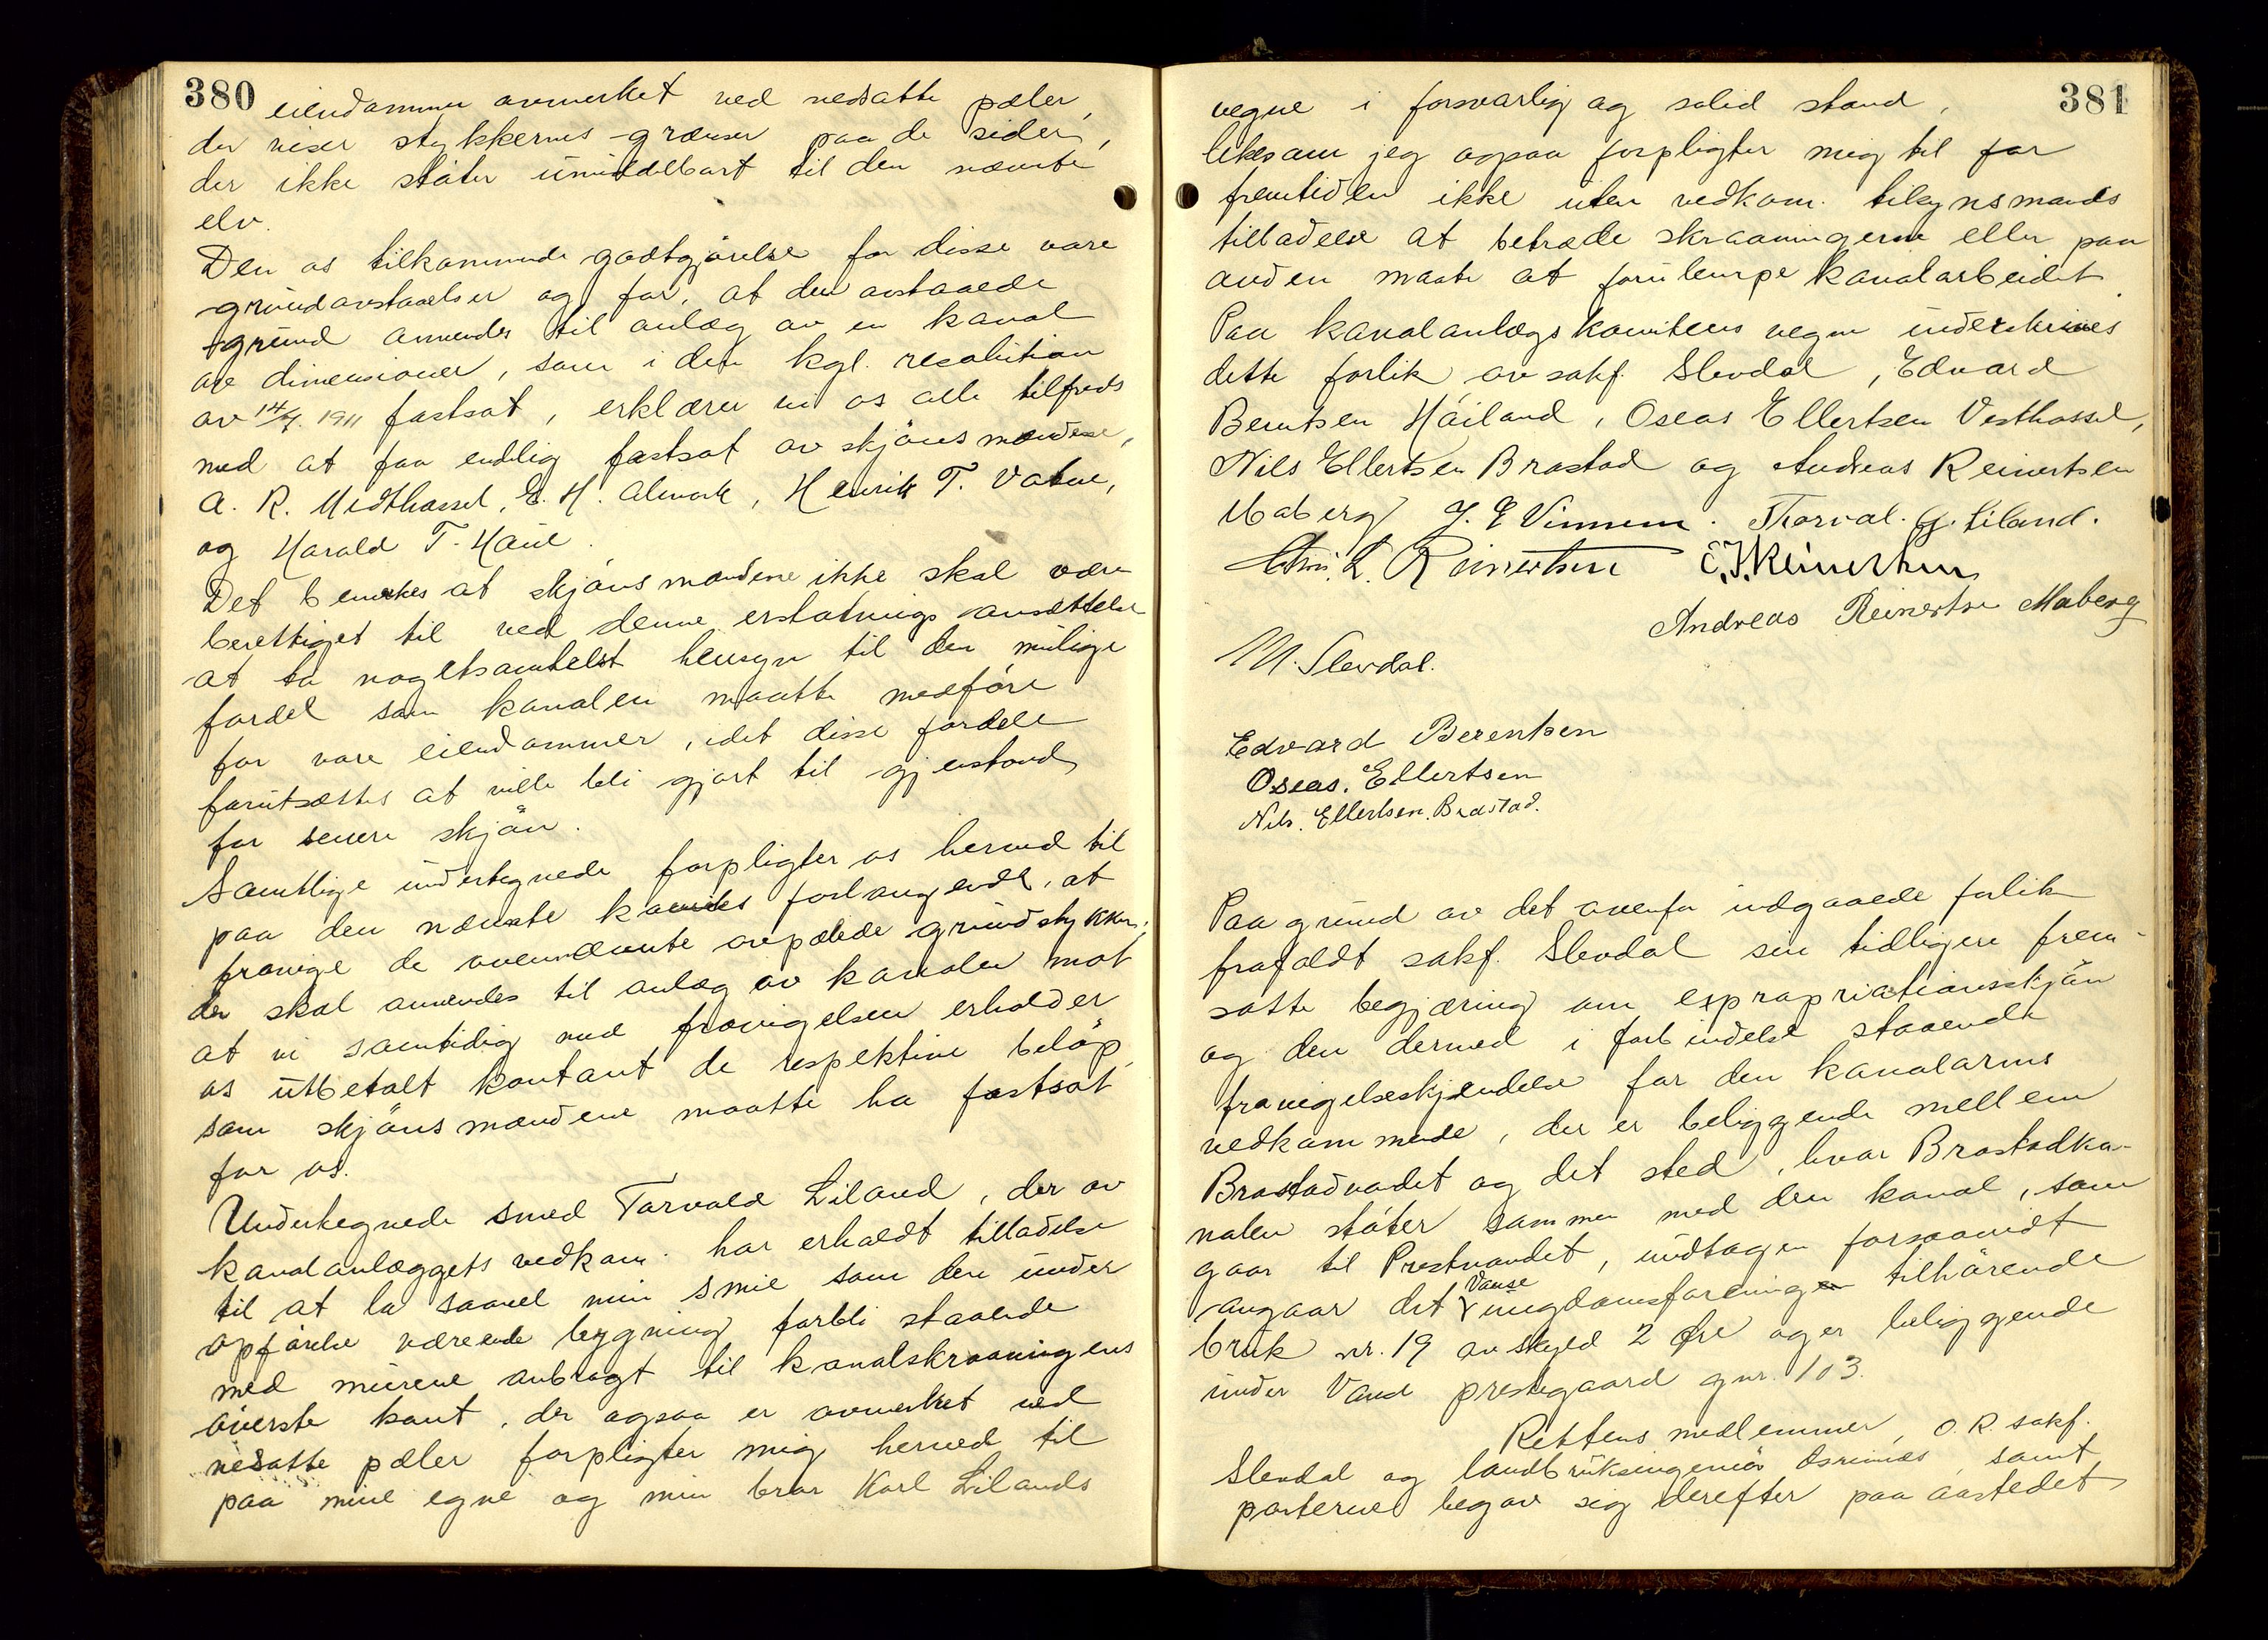 380
eiendommer avmerket ved nedsatte pæler,
der viser stykkernes grænser paa de sider,
der ikke støter umiddelbart til den nævnte
elv.
Den os tilkommende godtgjørelse for disse vore
grundavstaaelser og for, at den avstaaede
grund anvendes til anlæg av en kanal
av dimensioner, som i den kgl. resolution
av 14/7. 1911 fastsat, erklærer vi os alle tilfreds
med at faa endelig fastsat av skjønsmændene,
A. R. Midthassel, E. H. Almork, Henrik T. Vatne,
og Harald T. Haue.
Det bemerkes at skjønsmændene ikke skal være
berettiget til ved denne erstatnings ansættelse
at ta nogetsomhelst hensyn til den mulige
fordel som kanalen maatte medføre
for vore eiendommer, idet disse fordele
forutsættes at ville bli gjort til gjenstand
for senere skjøn.
Samtlige undertegnede forpligter os herved til
paa den nævnte komites forlangende, at
fravige de ovennævnte avpælede grundstykker,
der skal anvendes til anlæg av kanalen mot
at vi samtidig med fravigelsen erholder
os utbetalt kontant de respektive beløp,
som skjønsmændene maatte ha fastsat
for os.
Undertegnede smed Torvald Liland, der av
kanalanlæggets vedkom. har erholdt tilladelse
til at la saavel min smie som den under
opførelse værende bygning forbli staaende
med murene anbragt til kanalskraaningens
øverste kant, der ogsaa er avmerket ved
nedsatte pæler forpligter mig herved til
paa mine egne og min bror Karl Lilands
381
vegne i forsvarlig og solid stand,
likesom jeg ogsaa forpligter mig til for
fremtiden ikke uten vedkom. tilsynsmands
tilladelse at betræde skraaningerne eller paa
anden maate at forulempe kanalarbeidet.
Paa kanalanlægskomiteens vegne underskrives
dette forlik av sakf. Slevdal, Edvard
Berntsen Høiland, Oseas Ellertsen Vesthassel,
Nils Ellertsen Brastad og Andreas Reinertsen
Maberg J. E Vinnem. Thorval. G. Liland.
Chri. L. Reinertsen E. J. Reinertsen
Andreas Reinertse Maberg
M. Slevdal.
Edvard Berentsen
Oseas. Ellertsen
Nils. Ellertsen. Brastad.
Paa grund av det ovenfor indgaaede forlik
frafaldt sakf. Slevdal sin tidligere frem-
satte begjæring om expropriationsskjøn
og den dermed i forbindelse staaende
fravigelseskjendelse for den kanalarms
vedkommende, der er beliggende mellem
Brastadvandet og det sted, hvor Brastadka-
nalen støter sammen med den kanal, som
gaar til Prestvandet, undtagen forsaavidt
angaar det Vanse ungdomsforening tilhørende
bruk nr. 19 av skyld 2 Øre og er beliggende
under Vanse prestegaard gnr. 103.
Rettens medlemmer, O. R. sakf.
Slevdal og landbruksingeniør samt
parterne begav sig derefter paa aastedet